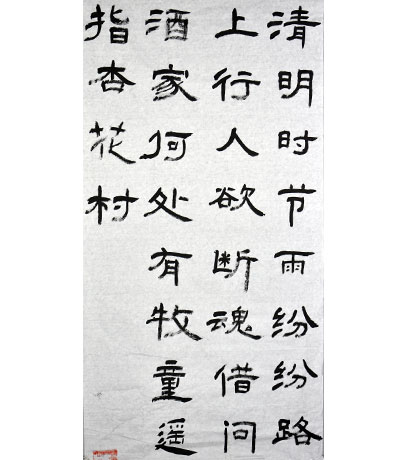 清明时节雨纷纷路
上行人欲断魂借问
酒家何处有牧童遥
指杏花村